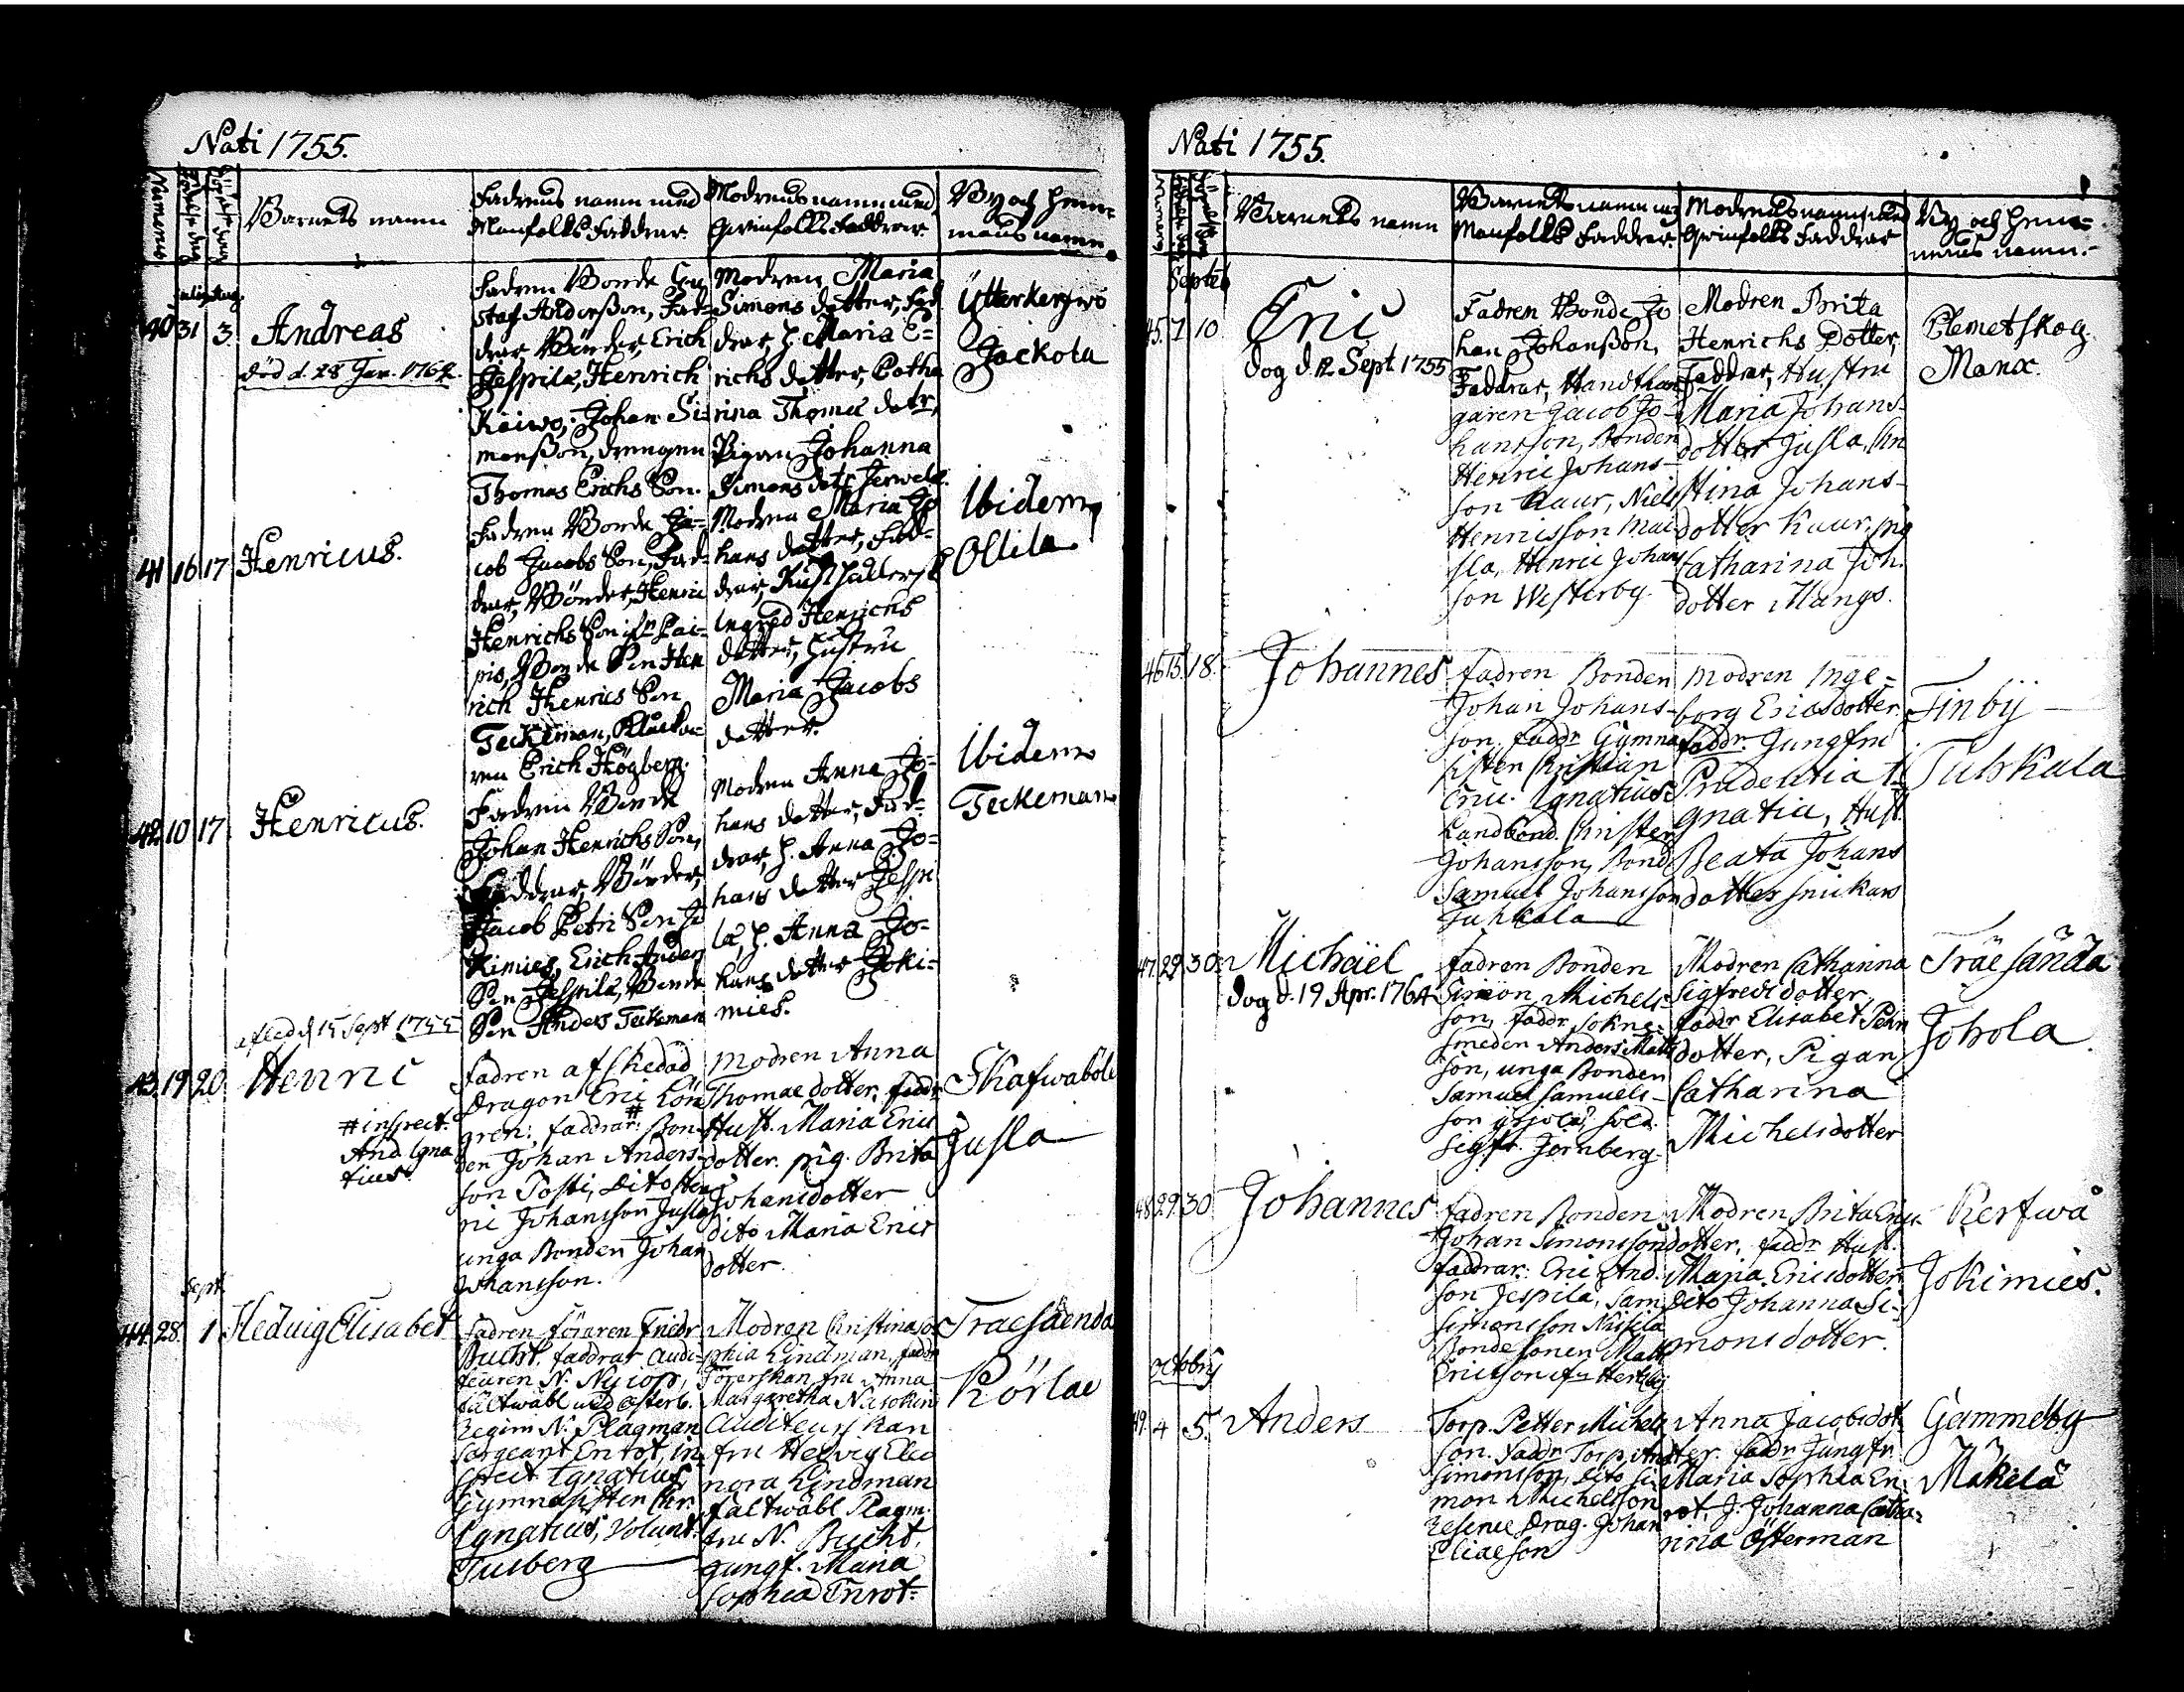 Nati 1755.
Numerus
Barnets namn
Fadrens namn med
Manfolks Faddrar
Modrens namn med
Qwinfolks Faddrar
By och Hem-
mans namn
40 31 3
Andreas
död d. 28 Jan. 1762
Fadren Bonde Gu
staf Anderßon, Fad-
drar, Bönder, Erich
Jespila, Henrich
Kaiwo, Johan Si-
monßon, drengen
Thomas Erichs Son.
Modren Maria
Simons dotter, Fad
drar, h. Maria E-
richs dotter, Catha
rina Thomæ dotr,
Pigan Johanna
Simons dotr Jerwelä.
Ytterkerfwo
Jackola
41 16 17
Henricus.
Fadren Bonde Ja-
cob Jacobs Son, Fad-
drar, Bönder, Henric
Henrichs Son ifrn Lai-
pis, Bonde Son Hen
rich Henrics Son
Teckeman, Klacka-
ren Erich Högberg.
Modren Maria Jo
hans dotter, Fad-
drar, Rusthåller
Ingred Henrichs
dotter, hustru
Maria Jacobs
dotter.
Ibidem
Ollila
42 10 17
Henricus.
Fadren Bonde
Johan Henrichs Son,
Faddrar, Bönder,
Jacob Petri Son Jo
kimies, Erich Anders
Son Jespila, Bonde
Son Anders Teckeman
Modren Anna Jo-
hans dotter, Fad-
drar, h. Anna Jo-
hans dotter Jespi
la, h. Anna Jo-
hans dotter Joki-
mies.
Ibidem
Teckeman
afled d 15 Sept 1755
43 19 20
Henric
# inspect.
And. Igna
tius
Fadren afskedad
Dragon Eric Lön
gren, faddrar # Bon-
den Johan Anders-
son Posti, Dito Hen
ric Johansson Jusla
unga Bonden Johan
Johansson.
Modren Anna
Thomae dotter, faddr
Hust. Maria Erics
dotter. pig. Brita
Johansdotter
dito Maria Erics
dotter.
Skafwaböle
Jusla
Sept.
44 28 1
Hedvig Elisabet
Fadren föraren Fredr
Bucht. faddrar Audi-
teuren N. Nycop,
fältwäbl wid Österb.
Regim N. Plagman
Sergeant Enrot, in-
spect Ignatius,
Gymnasisten Chr.
Ignatius, Volunt.
Tuiberg
Modren Christina So
phia Lindman, faddr
Förerskan fru Anna
Margaretha
Auditeurskan
fru Hedvig Eleo
nora Lindman
fältwäbl Plagm.
fru N. Bucht,
jungf. Maria
Sophia Enrot.
Traesaenda
Körlae
Nati 1755.
Barnets namn
Barnets namn med
Manfolks Faddrar
Modrens namn med
Qwinfolks Faddrar
By och Hem-
mans namn.
Septeb
45. 7 10
Eric
dog d. 12 Sept. 1755
Fadren Bonde Jo
han Johanßon,
Faddrar, Handtwer
garen Jacob Jo-
hansson, Bonden
Henric Johans-
son Kaur, Niels
Henricsson Mai-
sla, Henric Johans
son Westerby.
Modren Brita
Henrichs Dotter,
Faddrar, Hustru
Maria Johans-
dotter Jusla, Chri
stina Johans-
dotter Kaur, pig
Catharina Joh.
dotter Mangs.
Clemetskog
Manx.
46 15. 18.
Johannes
fadren Bonden
Johan Johans-
son. faddr Gymna
sisten Christian
Eric. Ignatius
Landbond. Christer
Johansson, Bond
Samuel Johansson
Tuhkala
modren Inge-
borg Ericsdotter.
faddr. Jungfru
Prudentia I-
gnatia, Hust.
Beata Johans
dotter snickars
Finby
Tuhkala
47. 29. 30.
Michäel
dog d. 19 Apr. 1764
fadren Bonden
Simon Michels-
son, faddr sokne-
smeden Anders Matts
son, unga Bonden
Samuel Samuels-
son yrjola, sold.
Sigfr. Jernberg.
Modren Catharina
Sigfredsdotter,
faddr Elisabet Pehr
dotter, Pigan
Catharina
Michelsdotter
Träsända
Johola.
48 29. 30
Johannes
fadren Bonden
Johan Simonsson
faddrar: Eric And.
son Jespila, Sam.
Simonsson Nissila
Bondesonen Matt
Ericsson ifrn
Modren Brita Erics
dotter, faddr Hust.
Maria Ericsdotter
Dito Johanna Si-
monsdotter.
Kerfwå
Jokimies.
Octobris
49. 4 5.
Anders
Torp. Petter Michels
son. faddr Torp. And
Simonsson, dito Si
mon Michelsson
Reserve Drag. Johan
Eliaeson
Anna Jacobsdot
ter. faddr Jungfr.
Maria Sophia En-
rot, J. Johanna Catha-
rina Österman
Gammelby
Mäkelä